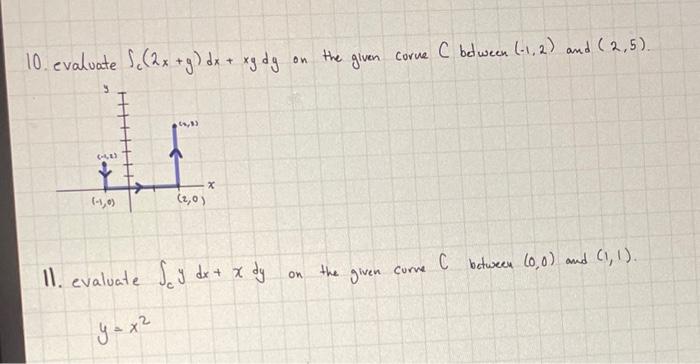 10. evaluate ∫c(2x+y)dx + xy dy on the given corve C between (-1,2) and (2,5).
y
(-1,2)
x
(-1,0)
(2,0)
11. evaluate ∫c y dx + x dy on the given curve C between (0,0) and (1,1).
y = x²